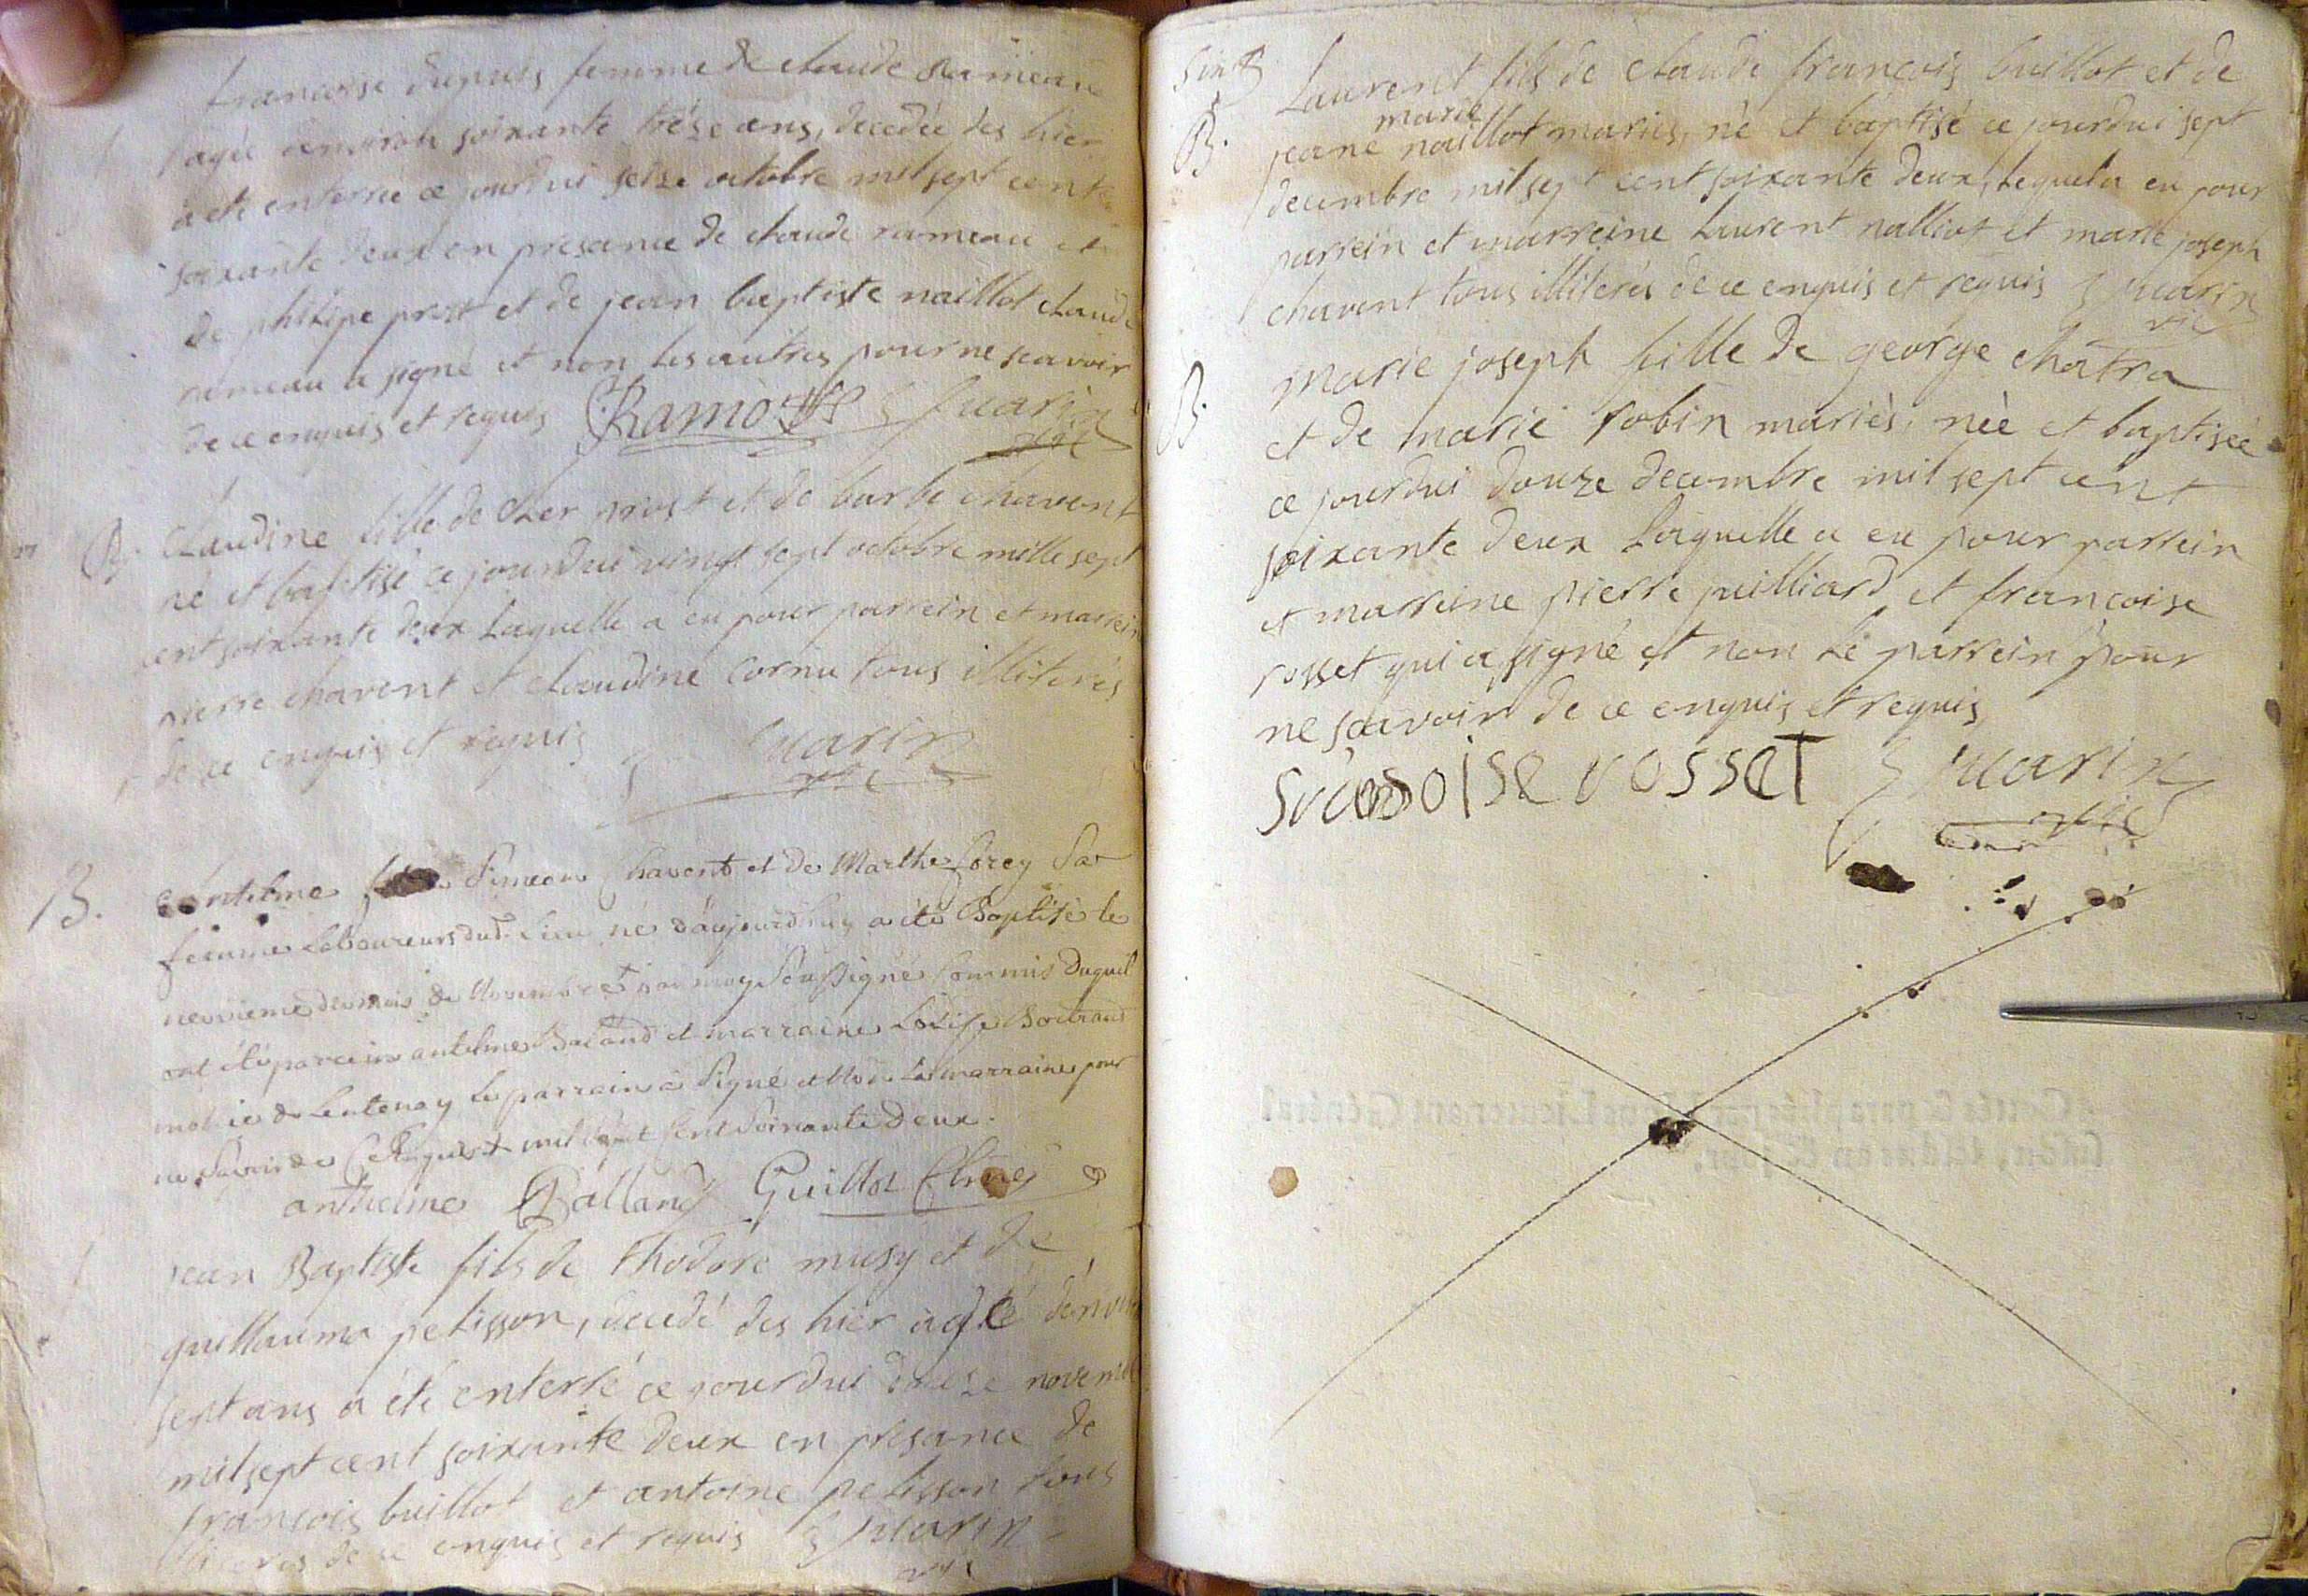 francoise dupuis femme de claude rameau
agée environ soixante trése ans, decedée des hier
a eté enterrée ce jourdui seize octobre mil sept cent
soixante deux en presance de claude rameau et
de philipe prost et de jean baptiste naillot claude
rameau a signé et non les autres pour ne scavoir
de ce enquis et requis Ramoz
Claudine fille de prost et de barbe chavent
né et baptisé ce jourdui vingt sept octobre mille sept
cent soixante deux Laquelle a eu pour parrein et marrein
pierre chavent et claudine cornu tous illiterés
de ce enquis et requis
B. Simeon Chavent et de Marthe Sa
femme Laboureurs dud. Lieu né d'aujourd'huy a été Baptisé le
neuvieme du mois de Novembre par moy Soussigné Commis duquel
ont été parrein antelme Baland et marraine
de Lentenay le parrain a Signé et Non La marraine pour
ne Savoir de Ce Enquis mil Sept Cent Soixante Deux.
anthelme Balland Guillot
jean Baptiste fils de Thodore musy et de
guillauma pelisson, decedé des hier agé
sept ans a été enterré ce jourdui novemb
mil sept cent soixante deux en presance de
francois buillot et antoine pelisson tous
de ce enquis et requis
B. Laurent fils de claude francois buillot et de
marie
jeane naillot mariés, né et baptisé ce jourdui sept
decembre mil sept cent soixante deux, Lequel a eu pour
parrein et marreine Laurent nalliot et marie joseph
chavent tous illiterés de ce enquis et requis
B. Marie joseph fille de george chatra
et de marie robin mariés, née et baptisée
ce jourdui douze decembre mil sept cent
soixante deux Laquelle a eu pour parrein
et marreine pierre juilliard et francoise
rosset qui a signé et non le parrein pour
ne scavoir de ce enquis et requis
rosset